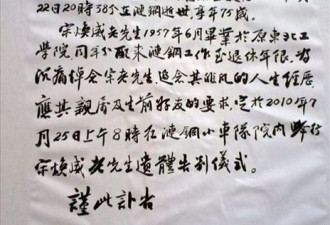 22日20时58分在涟钢逝世,享年75歲。
宋焕威老先生1957年6月畢業於原东北工
學院同年分配来涟钢工作至退休年限,为
沉痛悼念宋老先生,追念其非凡的人生经歷
應其親属及生前好友的要求,定於2010年7
月25日上午8時在涟钢小車隊院内舉行
宋焕威老先生遺體告别儀式。
謹此訃告